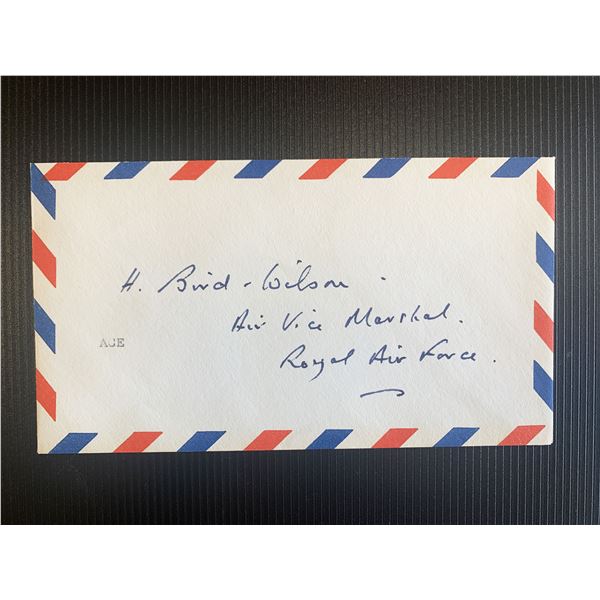 H. Bird-Wilson.
Air Vice Marshal.
ACE
Royal Air Force.